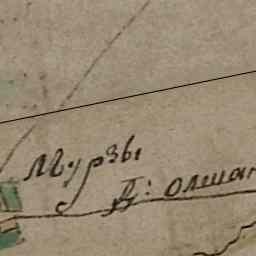 Мурзы
Д: олшан